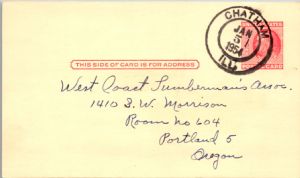 CHATHAM
JAN
5
1954
ILL.
THIS SIDE OF CARD IS FOR ADDRESS
West Coast Lumberman's Assoc.
1410 S.W. Morrison
Room No 604
Portland 5
Oregon